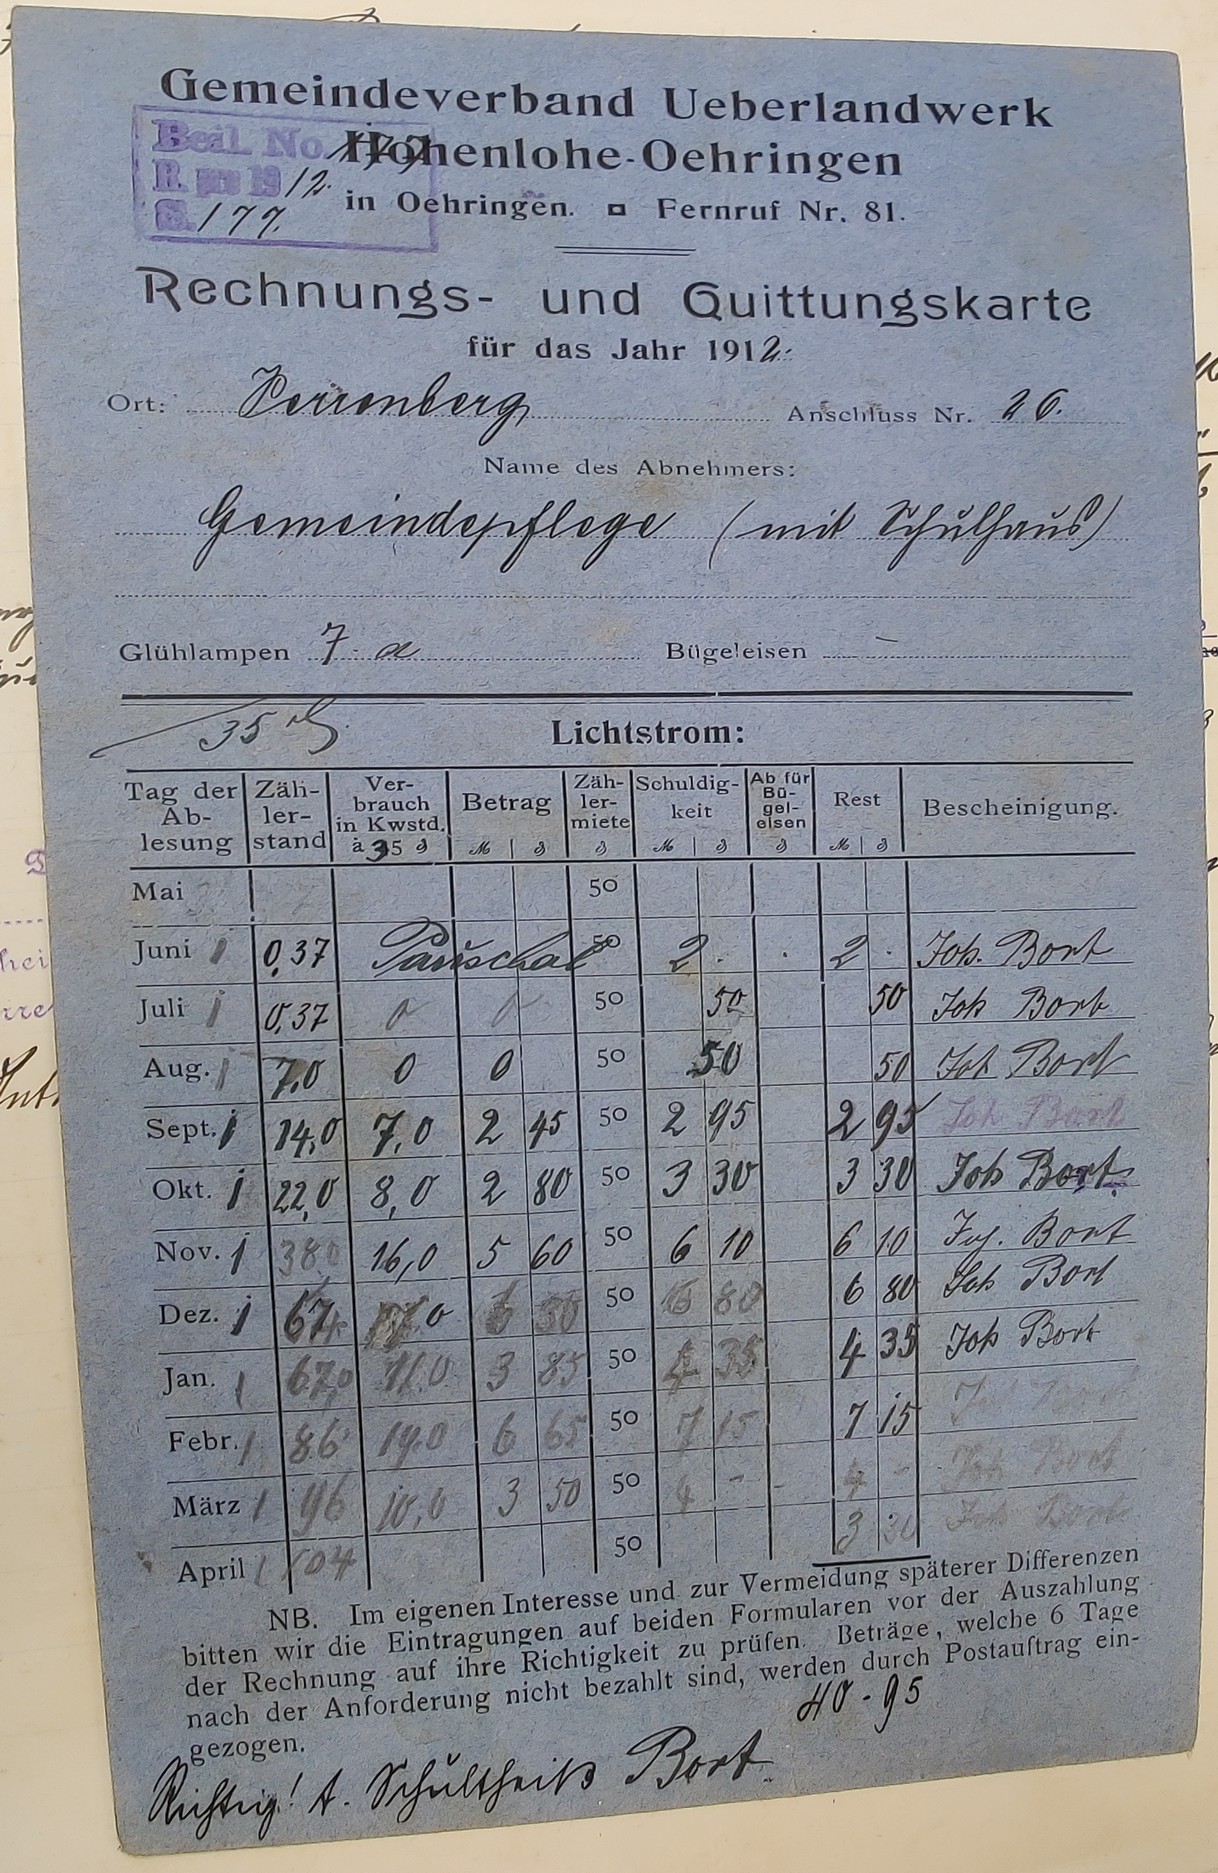 Gemeindeverband Ueberlandwerk
Hohenlohe-Oehringen
in Oehringen. Fernruf Nr. 81.
Beil. No. 177
R. pro 1912.
S. 177.
Rechnungs- und Quittungskarte
für das Jahr 1912.
Ort: Verrenberg Anschluss Nr. 26.
Name des Abnehmers:
Gemeindepflege (mit Schulhaus)
Glühlampen 7. Bügeleisen –
35
Lichtstrom:
Tag der Ablesung Zählerstand Verbrauch in Kwstd. à 35 ₰ Betrag ℳ ₰ Zählermiete ₰ Schuldigkeit ℳ ₰ Ab für Bügeleisen ₰ Rest ℳ ₰ Bescheinigung.
Mai 50
Juni 1 0,37 Pauschal 50 2 . . 2 . Joh. Bort
Juli 1 0,37 0 0 50 50 50 Joh Bort
Aug. 1 7,0 0 0 50 50 50 Joh Bort
Sept. 1 14,0 7,0 2 45 50 2 95 2 95 Joh Bort
Okt. 1 22,0 8,0 2 80 50 3 30 3 30 Joh Bort
Nov. 1 38,0 16,0 5 60 50 6 10 6 10 Bort
Dez. 1 50 6 80 6 80 Joh Bort
Jan. 1 67,0 11,0 3 85 50 4 35 4 35 Joh Bort
Febr. 1 86 19,0 6 65 50 7 15 7 15
März 1 96 10,0 3 50 50 4 - - 4 - Joh Bort
April 1 104 50 3 30 Joh Bort
NB. Im eigenen Interesse und zur Vermeidung späterer Differenzen
bitten wir die Eintragungen auf beiden Formularen vor der Auszahlung
der Rechnung auf ihre Richtigkeit zu prüfen. Beträge, welche 6 Tage
nach der Anforderung nicht bezahlt sind, werden durch Postauftrag ein-
gezogen.
40 - 95
Richtig! t. Schultheiß Bort.